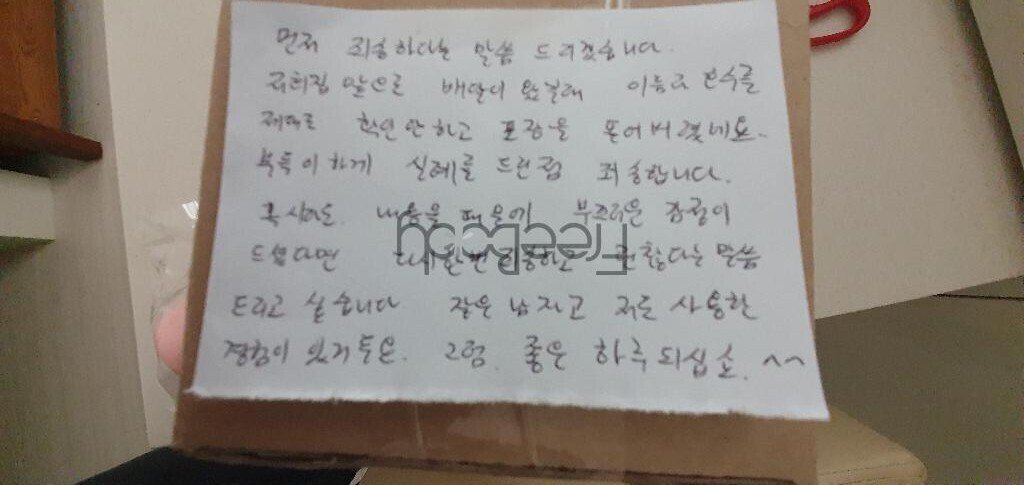 먼저 죄송하다는 말씀 드리겠습니다.
저희집 앞으로 배달이 왔길래 이름과 호수를
제대로 확인 안하고 포장을 뜯어버렸네요.
부득이하게 실례를 드린점 죄송합니다.
혹시라도. 내용물 때문에 부끄러운 감정이
드셨다면 다시한번 죄송하고 괜찮다는 말씀
드리고 싶습니다 같은 남자고 저도 사용한
경험이 있거든요. 그럼. 좋은 하루 되십쇼. ^^
Freebou